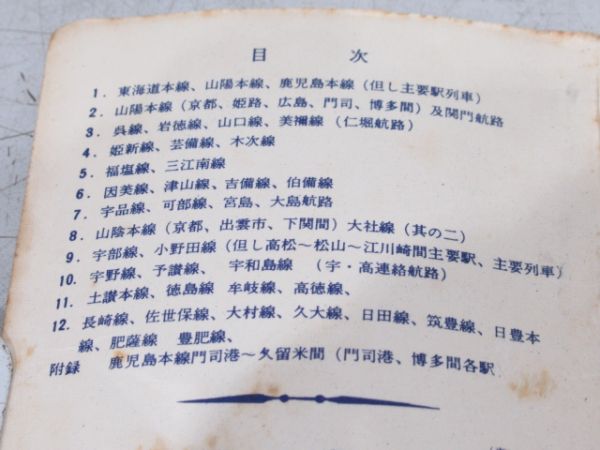 目次
1. 東海道本線、山陽本線、鹿児島本線(但し主要駅列車)
2. 山陽本線(京都、姫路、広島、門司、博多間)及関門航路
3. 呉線、岩徳線、山口線、美禰線(仁堀航路)
4. 姫新線、芸備線、木次線
5. 福塩線、三江南線
6. 因美線、津山線、吉備線、伯備線
7. 宇品線、可部線、宮島、大島航路
8. 山陰本線(京都、出雲市、下関間)大社線(其の二)
9. 宇部線、小野田線(但し高松~松山~江川崎間主要駅、主要列車)
10. 宇野線、予讃線、 宇和島線 (宇・高連絡航路)
11. 土讃本線、徳島線 牟岐線、高徳線、
12. 長崎線、佐世保線、大村線、久大線、日田線、筑豊線、日豊本
線、肥薩線 豊肥線、
附録 鹿児島本線門司港~久留米間(門司港、博多間各駅